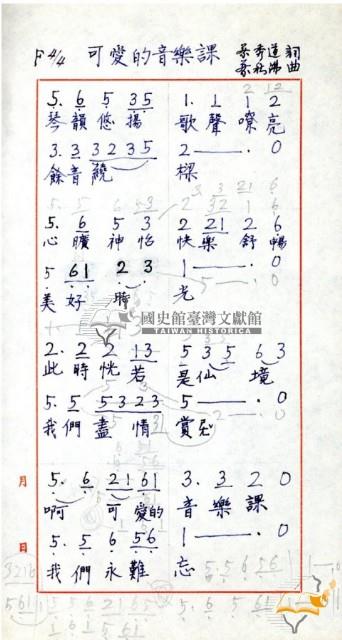 F 4/4 可愛的音樂課
蔡秀道詞
蔡秋湯曲
5. 6 5 35 1. 1 1 2
琴韻悠揚 歌聲嘹亮
3. 3 3235 2 — . 0
餘音繞 樑
5. 6 5 3 2 21 2 6
心曠神怡 快樂舒暢
5 61 2 3 1 — . 0
美好時 光
國史館臺灣文獻館
TAIWAN HISTORICA
2. 2 2 13 5 3 5 6 3
此時恍若 是仙境
5. 5 5323 5 — . 0
我們盡情 賞
5. 6 21 61 3. 3 2 0
啊 可愛的 音樂課
5. 5 6 56 1 — . 0
我們永難 忘
月
日